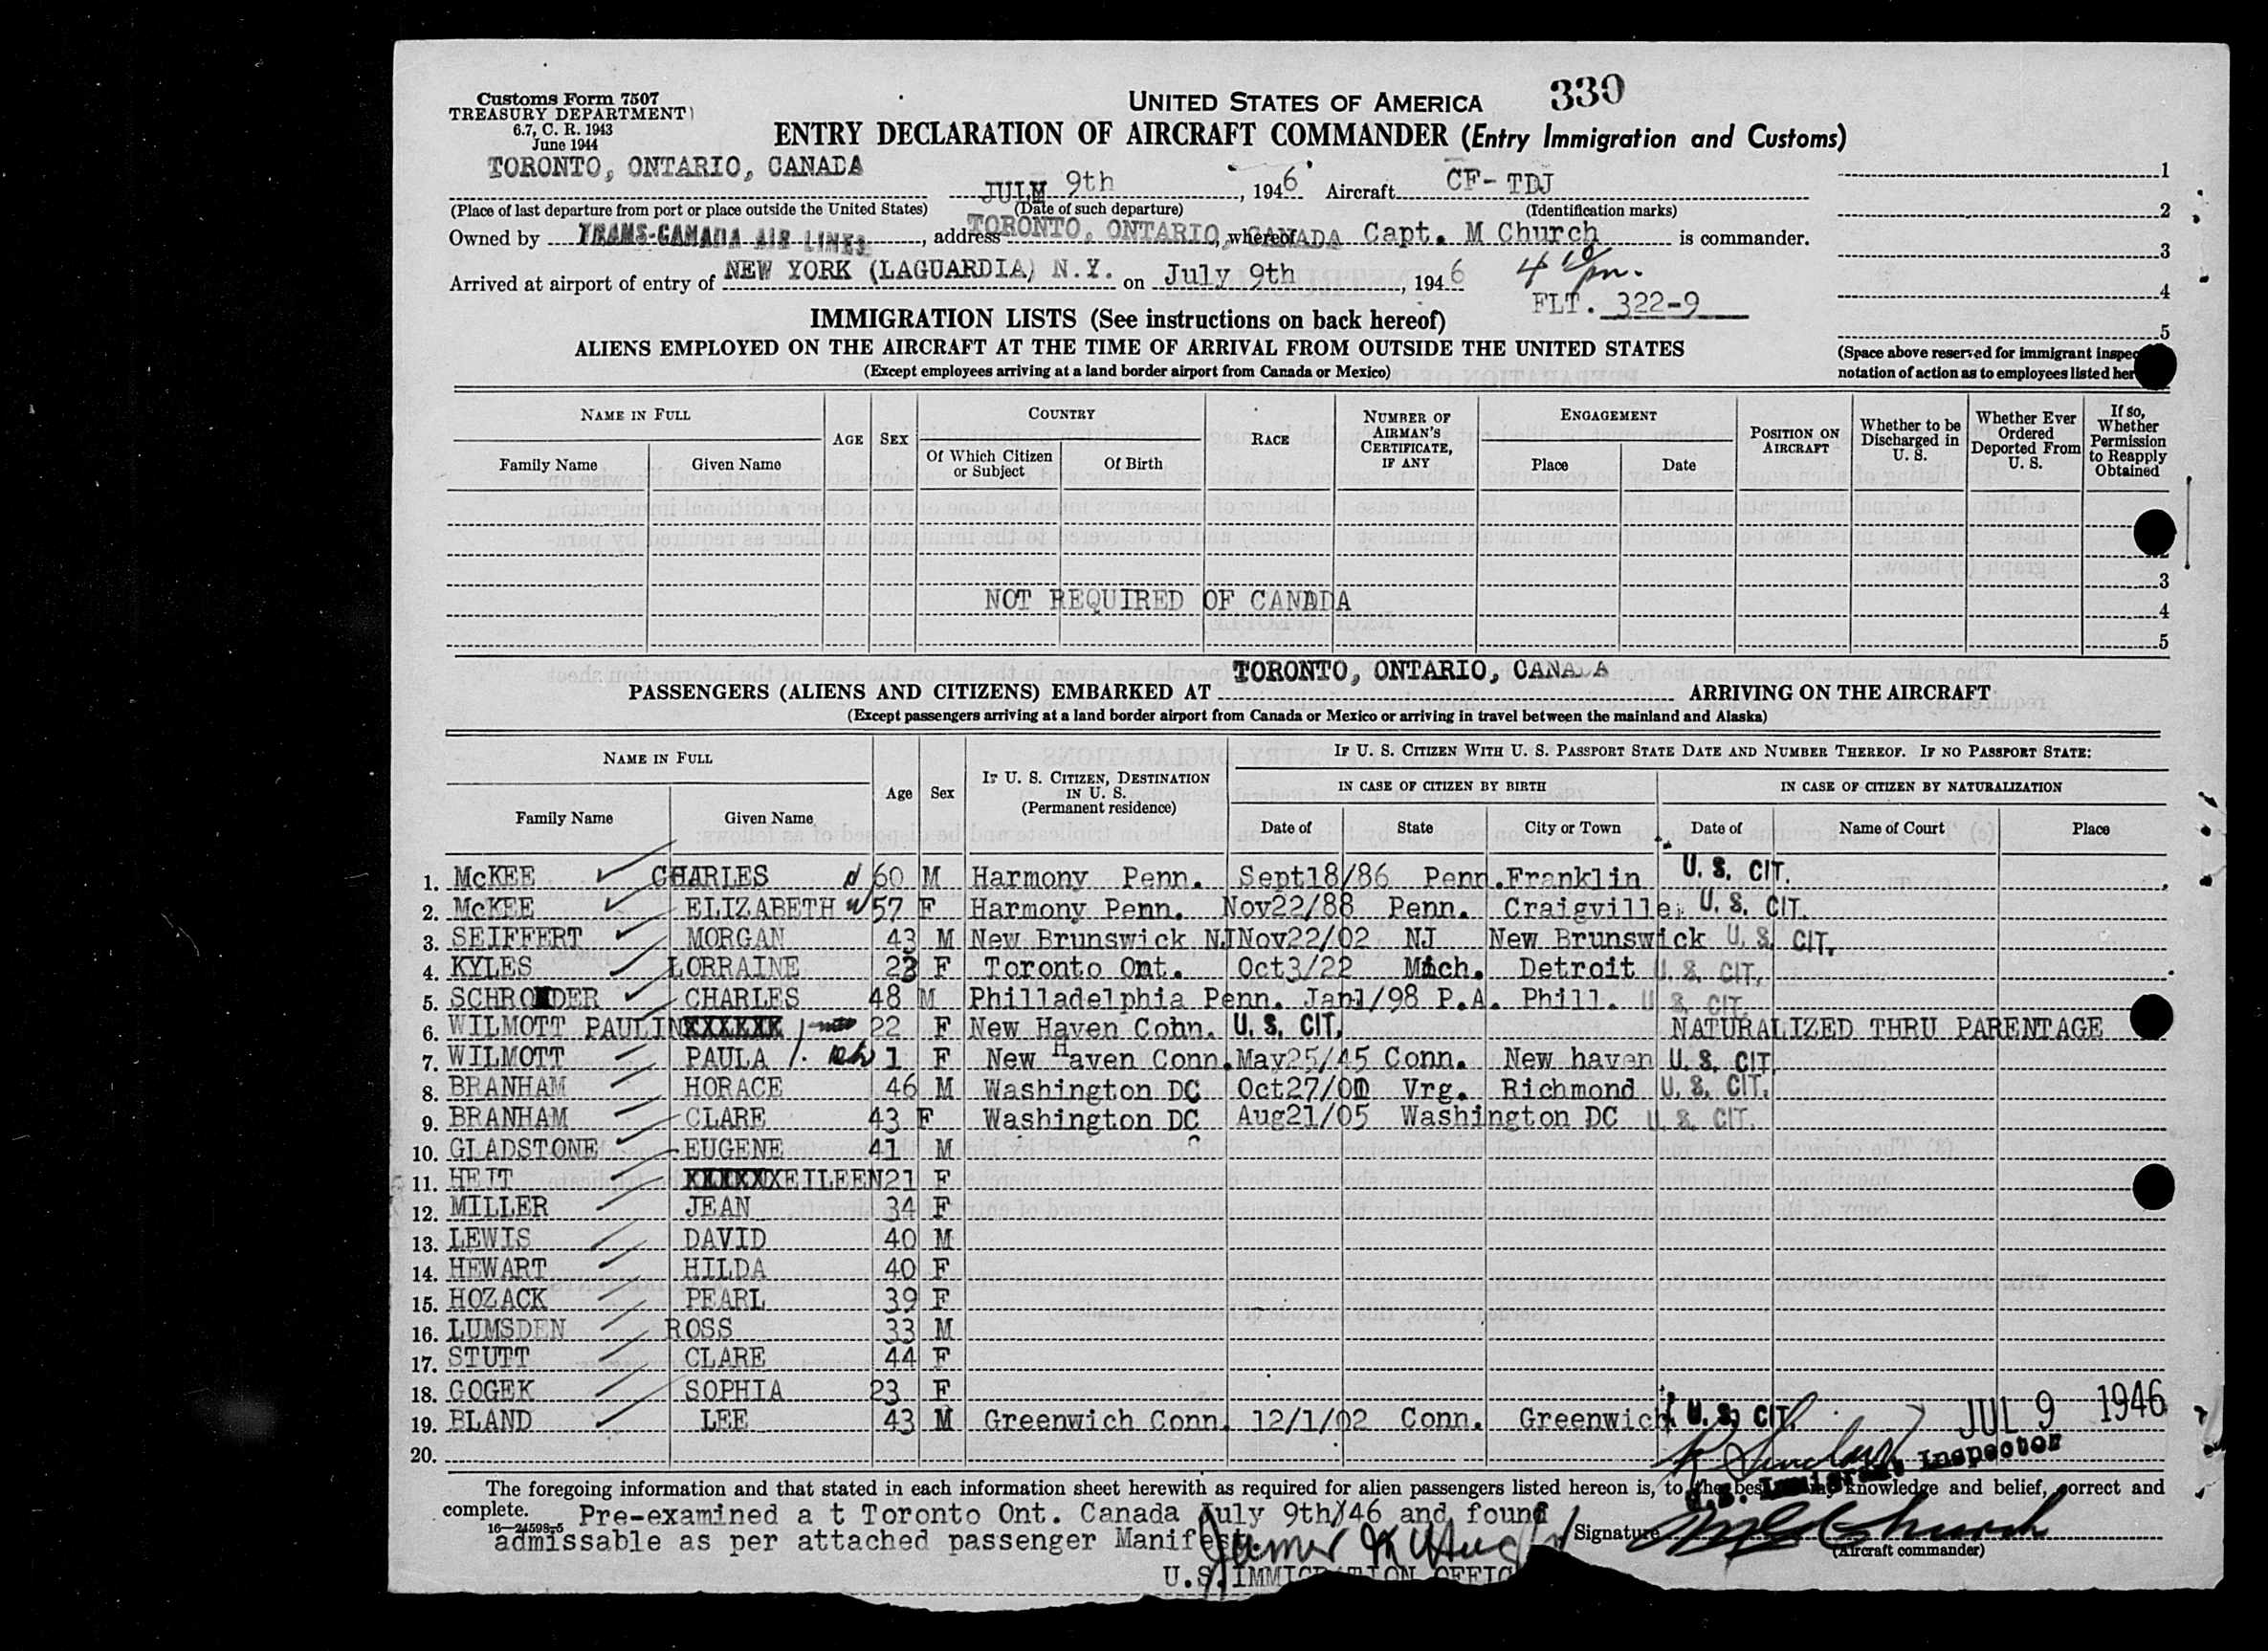 Customs Form 7507
TREASURY DEPARTMENT
6.7, C. R. 1943
June 1944
UNITED STATES OF AMERICA 330
ENTRY DECLARATION OF AIRCRAFT COMMANDER (Entry Immigration and Customs)
TORONTO, ONTARIO, CANADA JULY 9th, 1946 Aircraft CF-TDJ 1
(Place of last departure from port or place outside the United States) (Date of such departure) (Identification marks) 2
Owned by TRANS-CANADA AIR LINES, address TORONTO, ONTARIO, CANADA, whereof Capt. M Church is commander. 3
Arrived at airport of entry of NEW YORK (LAGUARDIA) N.Y. on July 9th, 1946 4 10 pm. 4
FLT. 322-9
IMMIGRATION LISTS (See instructions on back hereof) 5
ALIENS EMPLOYED ON THE AIRCRAFT AT THE TIME OF ARRIVAL FROM OUTSIDE THE UNITED STATES
(Space above reserved for immigrant inspec
(Except employees arriving at a land border airport from Canada or Mexico)
notation of action as to employees listed her
NAME IN FULL AGE SEX COUNTRY RACE NUMBER OF AIRMAN'S CERTIFICATE, IF ANY ENGAGEMENT POSITION ON AIRCRAFT Whether to be Discharged in U. S. Whether Ever Ordered Deported From U. S. If so, Whether Permission to Reapply Obtained
Family Name Given Name Of Which Citizen or Subject Of Birth Place Date
3
NOT REQUIRED OF CANADA 4
5
PASSENGERS (ALIENS AND CITIZENS) EMBARKED AT TORONTO, ONTARIO, CANADA ARRIVING ON THE AIRCRAFT
(Except passengers arriving at a land border airport from Canada or Mexico or arriving in travel between the mainland and Alaska)
NAME IN FULL Age Sex IF U. S. CITIZEN, DESTINATION IN U. S. (Permanent residence) IF U. S. CITIZEN WITH U. S. PASSPORT STATE DATE AND NUMBER THEREOF. IF NO PASSPORT STATE:
IN CASE OF CITIZEN BY BIRTH IN CASE OF CITIZEN BY NATURALIZATION
Family Name Given Name Date of State City or Town Date of Name of Court Place
1. McKEE CHARLES 60 M Harmony Penn. Sept18/86 Penn. Franklin U. S. CIT.
2. McKEE ELIZABETH 57 F Harmony Penn. Nov22/88 Penn. Craigville U. S. CIT.
3. SEIFFERT MORGAN 43 M New Brunswick NJ Nov22/02 NJ New Brunswick U. S. CIT.
4. KYLES LORRAINE 23 F Toronto Ont. Oct3/22 Mich. Detroit U. S. CIT.
5. SCHRODER CHARLES 48 M Philladelphia Penn. Jan1/98 P.A. Phill. U. S. CIT.
6. WILMOTT PAULIN 22 F New Haven Cohn. U. S. CIT. NATURALIZED THRU PARENTAGE
7. WILMOTT PAULA 1 F New Haven Conn. May25/45 Conn. New haven U. S. CIT.
8. BRANHAM HORACE 46 M Washington DC Oct27/00 Vrg. Richmond U. S. CIT.
9. BRANHAM CLARE 43 F Washington DC Aug21/05 Washington DC U. S. CIT.
10. GLADSTONE EUGENE 41 M
11. HEIT EILEEN 21 F
12. MILLER JEAN 34 F
13. LEWIS DAVID 40 M
14. HEWART HILDA 40 F
15. HOZACK PEARL 39 F
16. LUMSDEN ROSS 33 M
17. STUTT CLARE 44 F
18. GOGEK SOPHIA 23 F
19. BLAND LEE 43 M Greenwich Conn. 12/1/02 Conn. Greenwich U. S. CIT. JUL 9 1946
20.
U.S. Immigrant Inspector
The foregoing information and that stated in each information sheet herewith as required for alien passengers listed hereon is, to the best my knowledge and belief, correct and
complete. Pre-examined a t Toronto Ont. Canada July 9th/46 and found
16-24598-5 admissable as per attached passenger Manifest. Signature M Church
(Aircraft commander)
U.S. IMMIGRATION OFFIC